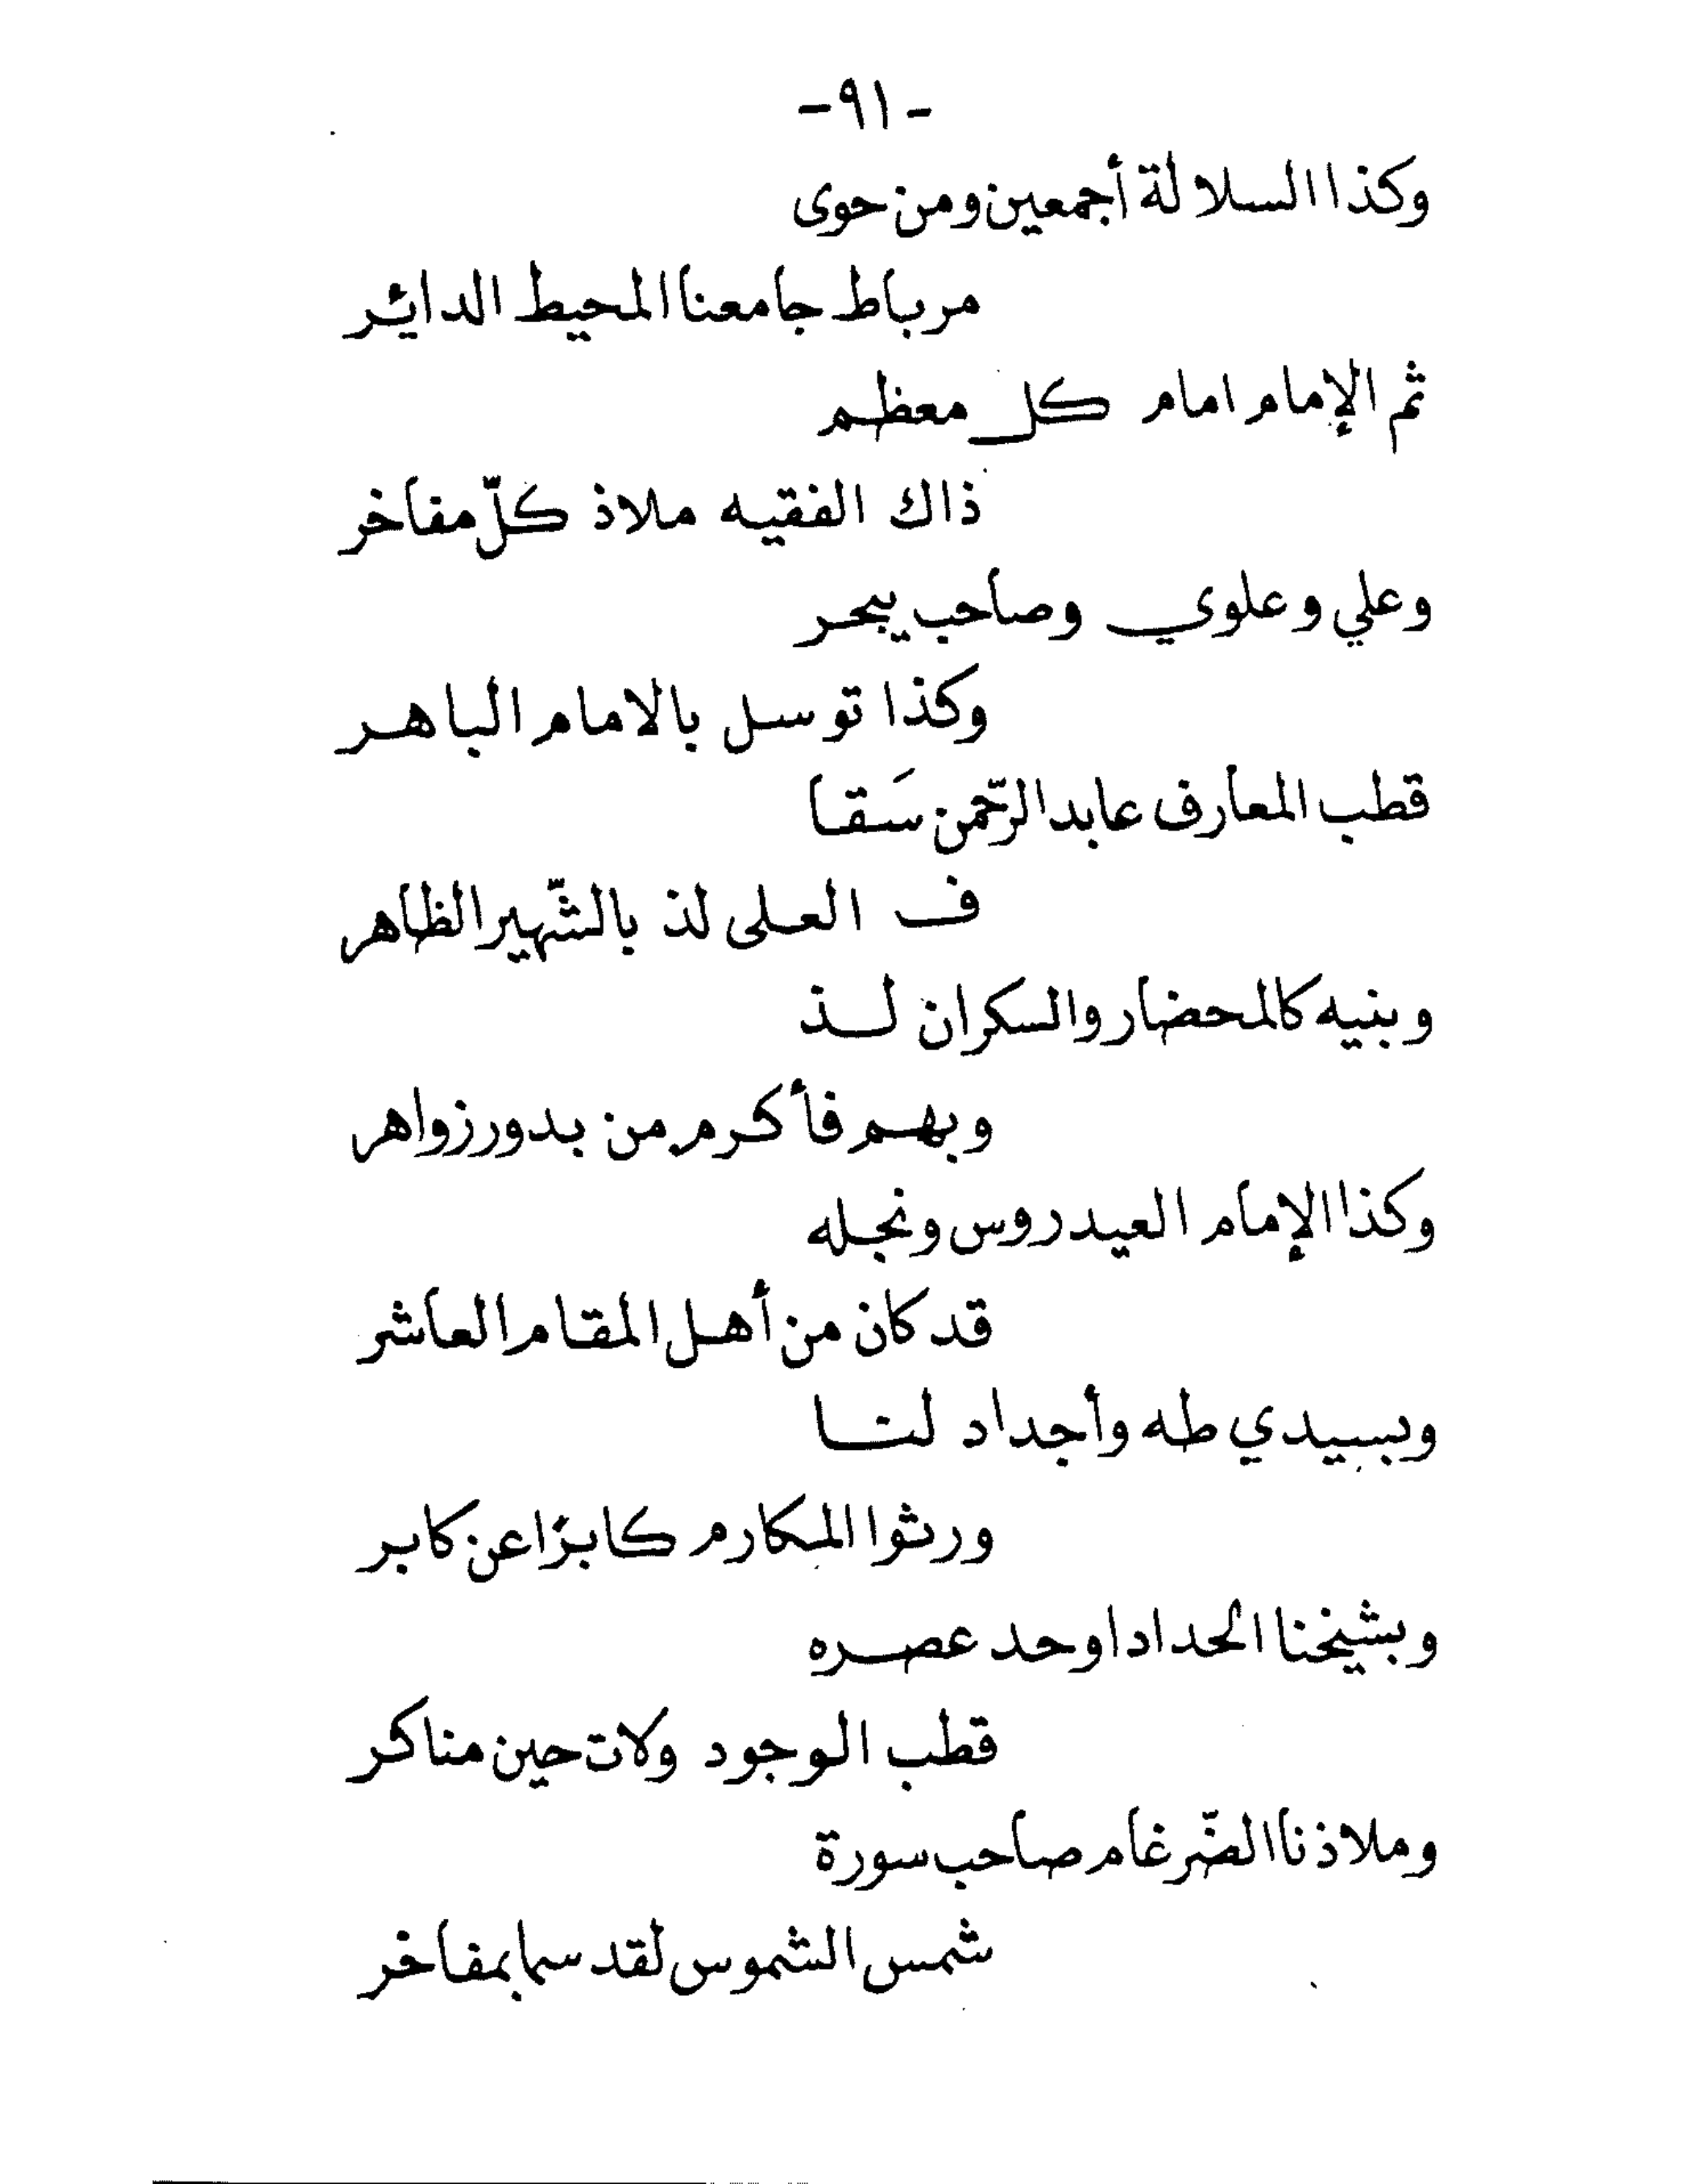 -٩١-
وكذا السلالة أجمعين ومن حوى
مرباط جامعنا المحيط الدائر
ثم الإمام امام كل معظم
ذاك الفقيه ملاذ كلّ مفاخر
وعلي وعلوي وصاحب يبحر
وكذا توسل بالامام الباهر
قطب المعارف عابد الرّحمن سَقا
ف العلى لذ بالشّهير الظاهر
وبنيه كالمحضار والسكران لذ
وبهم فأكرم من بدور زواهر
وكذا الإمام العيدروس ونجله
قد كان من أهل المقام العاشر
وبسيدي طه وأجداد لنا
ورثوا المكارم كابرًا عن كابر
وبشيخنا الحداد اوحد عصره
قطب الوجود ولات حين مناكر
وملاذنا الضّرغام صاحب سورة
شمس الشموس لقد سما بمفاخر